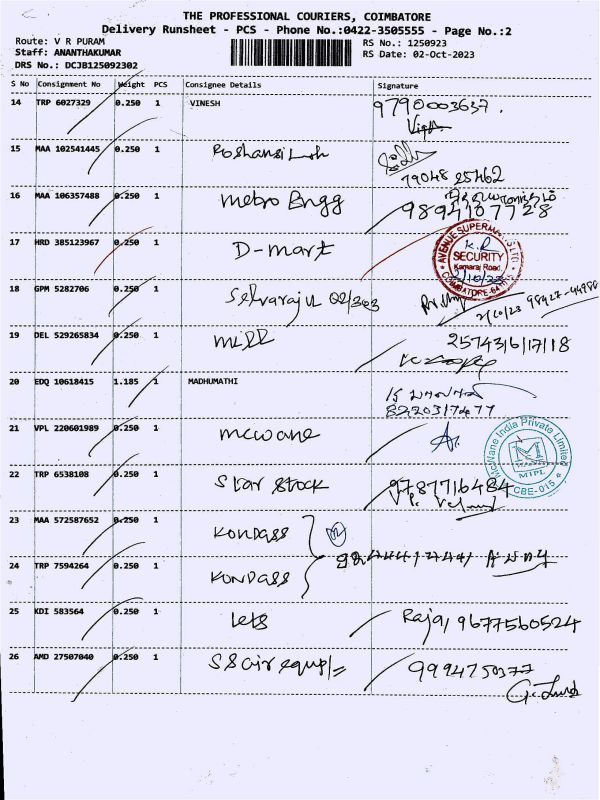 THE PROFESSIONAL COURIERS, COIMBATORE
Delivery Runsheet - PCS - Phone No.:0422-3505555 - Page No.:2
Route: V R PURAM
RS No.: 1250923
Staff: ANANTHAKUMAR
RS Date: 02-Oct-2023
DRS No.: DCJB125092302
S No Consignment No Weight PCS Consignee Details Signature
14 TRP 6027329 0.250 1 VINESH 9790003637.
15 MAA 102541445 0.250 1
79048 25462
16 MAA 106357488 0.250 1 metro Engg
9894107728
17 HRD 385123967 0.250 1 D-mart
AVENUE SUPERMARTS LTD
K.R
SECURITY
Kamaraj Road.
COIMBATORE-641
18 GPM 5282706 0.250 1 Selvaraju 02/303
2/10/23
19 DEL 529265834 0.250 1 257431/6/17/18
20 EDQ 10618415 1.185 1 MADHUMATHI
8220317477
21 VPL 220601989 0.250 1 mcwane
McWane India Private Limited
MIPL
CBE-015
22 TRP 6538108 0.250 1 Star Stock 9787716484
23 MAA 572587652 0.250 1 KONDASS
24 TRP 7594264 0.250 1 KONDASS
25 KDI 583564 0.250 1 Lets Raja, 9677560524
26 AMD 27507040 0.250 1 SS air equip 9994750377